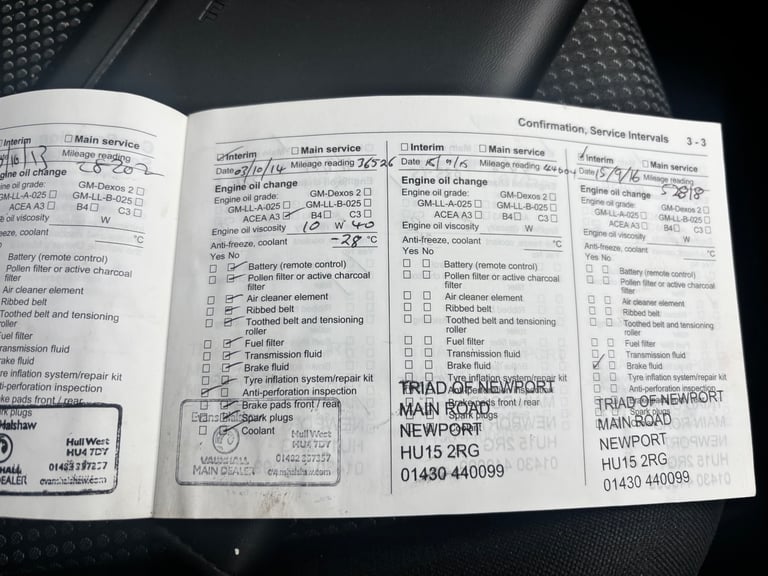 Confirmation, Service Intervals 3 - 3
Interim □ Main service
10/13 Mileage reading
28202
gine oil change
ine oil grade: GM-Dexos 2 □
-LL-A-025 □ GM-LL-B-025 □
ACEA A3 □ B4 □ C3 □
e oil viscosity W
eeze, coolant °C
Battery (remote control)
Pollen filter or active charcoal
filter
Air cleaner element
Ribbed belt
Toothed belt and tensioning
roller
uel filter
ransmission fluid
rake fluid
re inflation system/repair kit
ti-perforation inspection
ke pads front / rear
rk plugs
Halshaw
Hull West
HU4 7DY
HALL
DEALER
evanshalshaw.com
☑ Interim □ Main service
Date 03/10/14 Mileage reading 36526
Engine oil change
Engine oil grade: GM-Dexos 2 □
GM-LL-A-025 □ GM-LL-B-025 □
ACEA A3 ☑ B4 □ C3 □
Engine oil viscosity 10 W 40
Anti-freeze, coolant -28 °C
Yes No
□ ☑ Battery (remote control)
□ ☑ Pollen filter or active charcoal
filter
□ ☑ Air cleaner element
□ ☑ Ribbed belt
□ ☑ Toothed belt and tensioning
roller
□ ☑ Fuel filter
□ ☑ Transmission fluid
□ ☑ Brake fluid
□ ☑ Tyre inflation system/repair kit
☑ □ Anti-perforation inspection
□ ☑ Brake pads front / rear
□ ☑ Spark plugs
□ ☑ Coolant
Evans Halshaw
Hull West
HU4 7DY
VAUXHALL 01482 357357
MAIN DEALER evanshalshaw.com
□ Interim □ Main service
Date 15/9/15 Mileage reading
Engine oil change
Engine oil grade: GM-Dexos 2 □
GM-LL-A-025 □ GM-LL-B-025 □
ACEA A3 □ B4 □ C3 □
Engine oil viscosity W
Anti-freeze, coolant °C
Yes No
□ □ Battery (remote control)
□ □ Pollen filter or active charcoal
filter
□ □ Air cleaner element
□ □ Ribbed belt
□ □ Toothed belt and tensioning
roller
□ □ Fuel filter
□ □ Transmission fluid
□ □ Brake fluid
□ □ Tyre inflation system/repair kit
□ □ Anti-perforation inspection
□ □ Brake pads front / rear
□ □ Spark plugs
TRIAD OF NEWPORT
MAIN ROAD
NEWPORT
HU15 2RG
01430 440099
☑ Interim □ Main service
Date 15/9/16 Mileage reading
5288
Engine oil change
Engine oil grade: GM-Dexos 2 □
GM-LL-A-025 □ GM-LL-B-025 □
ACEA A3 □ B4 □ C3 □
Engine oil viscosity W
Anti-freeze, coolant °C
Yes No
□ □ Battery (remote control)
□ □ Pollen filter or active charcoal
filter
□ □ Air cleaner element
□ □ Ribbed belt
□ □ Toothed belt and tensioning
roller
□ □ Fuel filter
□ □ Transmission fluid
☑ □ Brake fluid
□ □ Tyre inflation system/repair kit
□ □ Anti-perforation inspection
□ □ Brake pads front / rear
□ □ Spark plugs
TRIAD OF NEWPORT
MAIN ROAD
NEWPORT
HU15 2RG
01430 440099